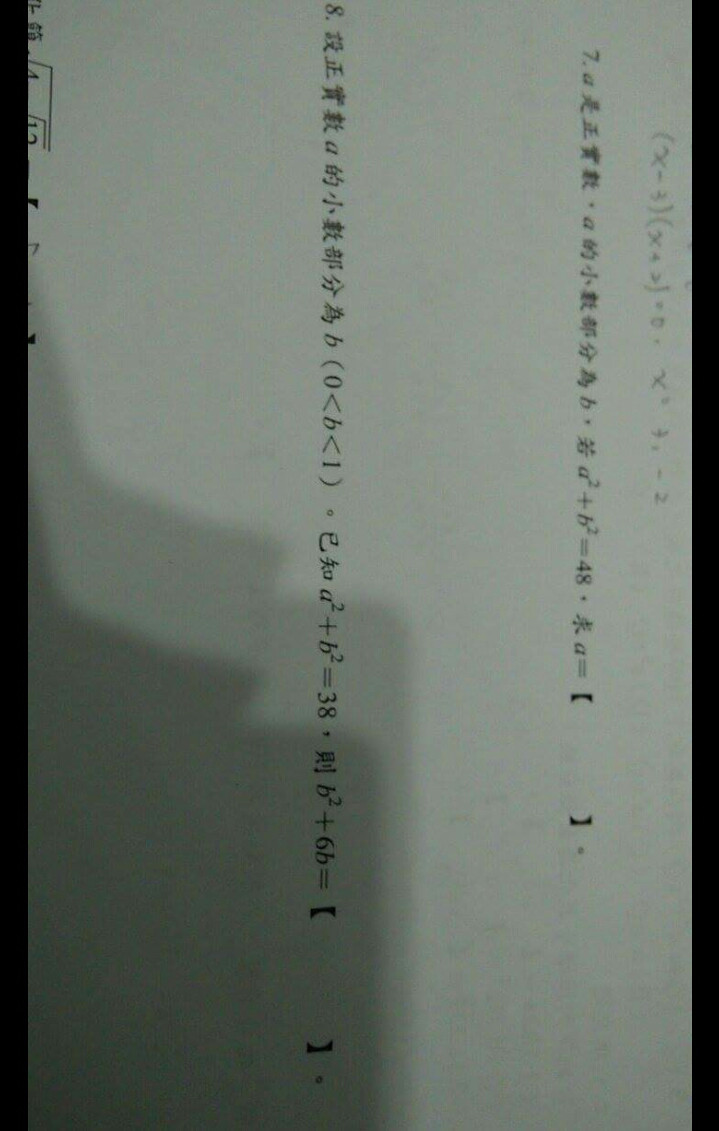 (x-3)(x+2)=0, x=3,-2
7. a 是正實數,a 的小數部分為 b,若 a²+b²=48,求 a=【　　】。
8. 設正實數 a 的小數部分為 b(0<b<1)。已知 a²+b²=38,則 b²+6b=【　　】。